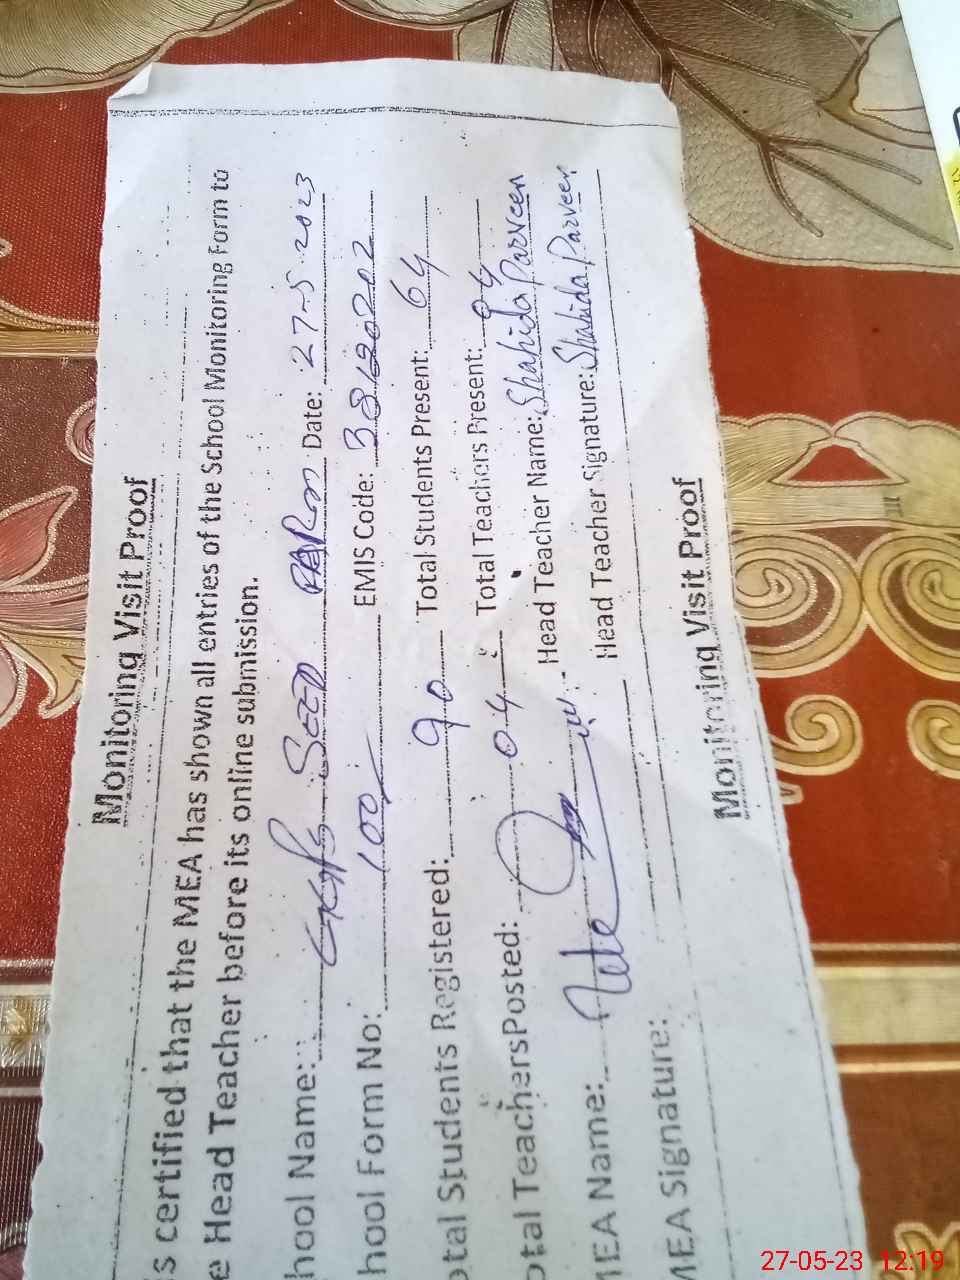 Monitoring Visit Proof
s certified that the MEA has shown all entries of the School Monitoring Form to
e Head Teacher before its online submission.
hool Name: GGPS SEED FARM Date: 27-5-2023
hool Form No: 100 EMIS Code: 38120202
otal Students Registered: 90 Total Students Present: 64
otal TeachersPosted: 04 Total Teachers Present: 04
MEA Name: Head Teacher Name: Shahida Parveen
MEA Signature: Head Teacher Signature: Shahida Parveen
Monitoring Visit Proof
27-05-23 12:19